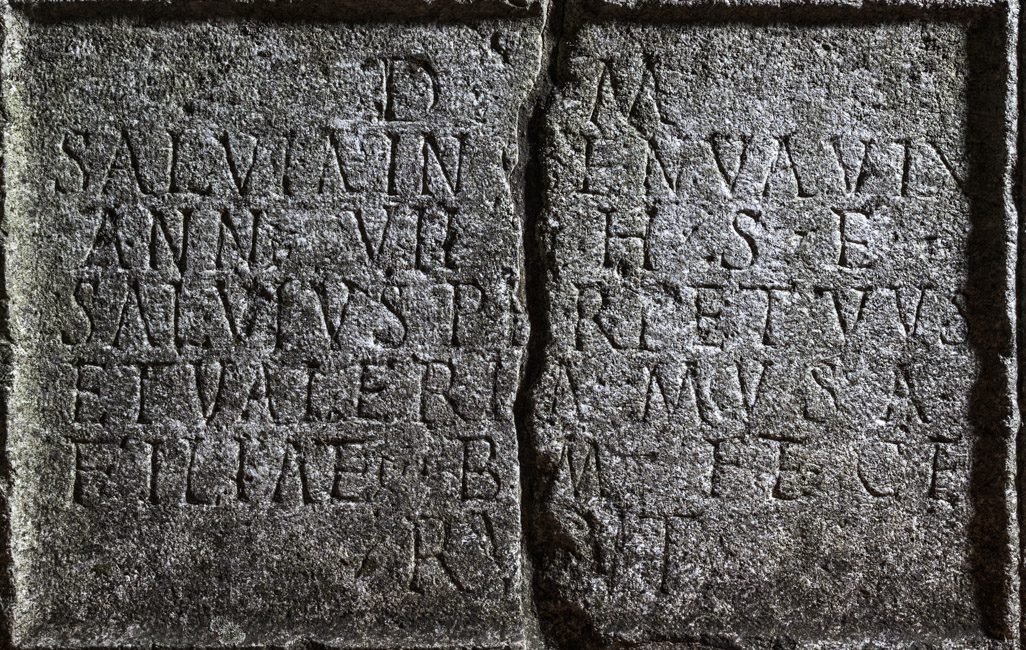 D M
SALVIA INGENVA VIX
ANN VII H S E
SALVIVS PERPETVVS
ET VALERIA MVSA
FILIAE B M FECE
RVNT